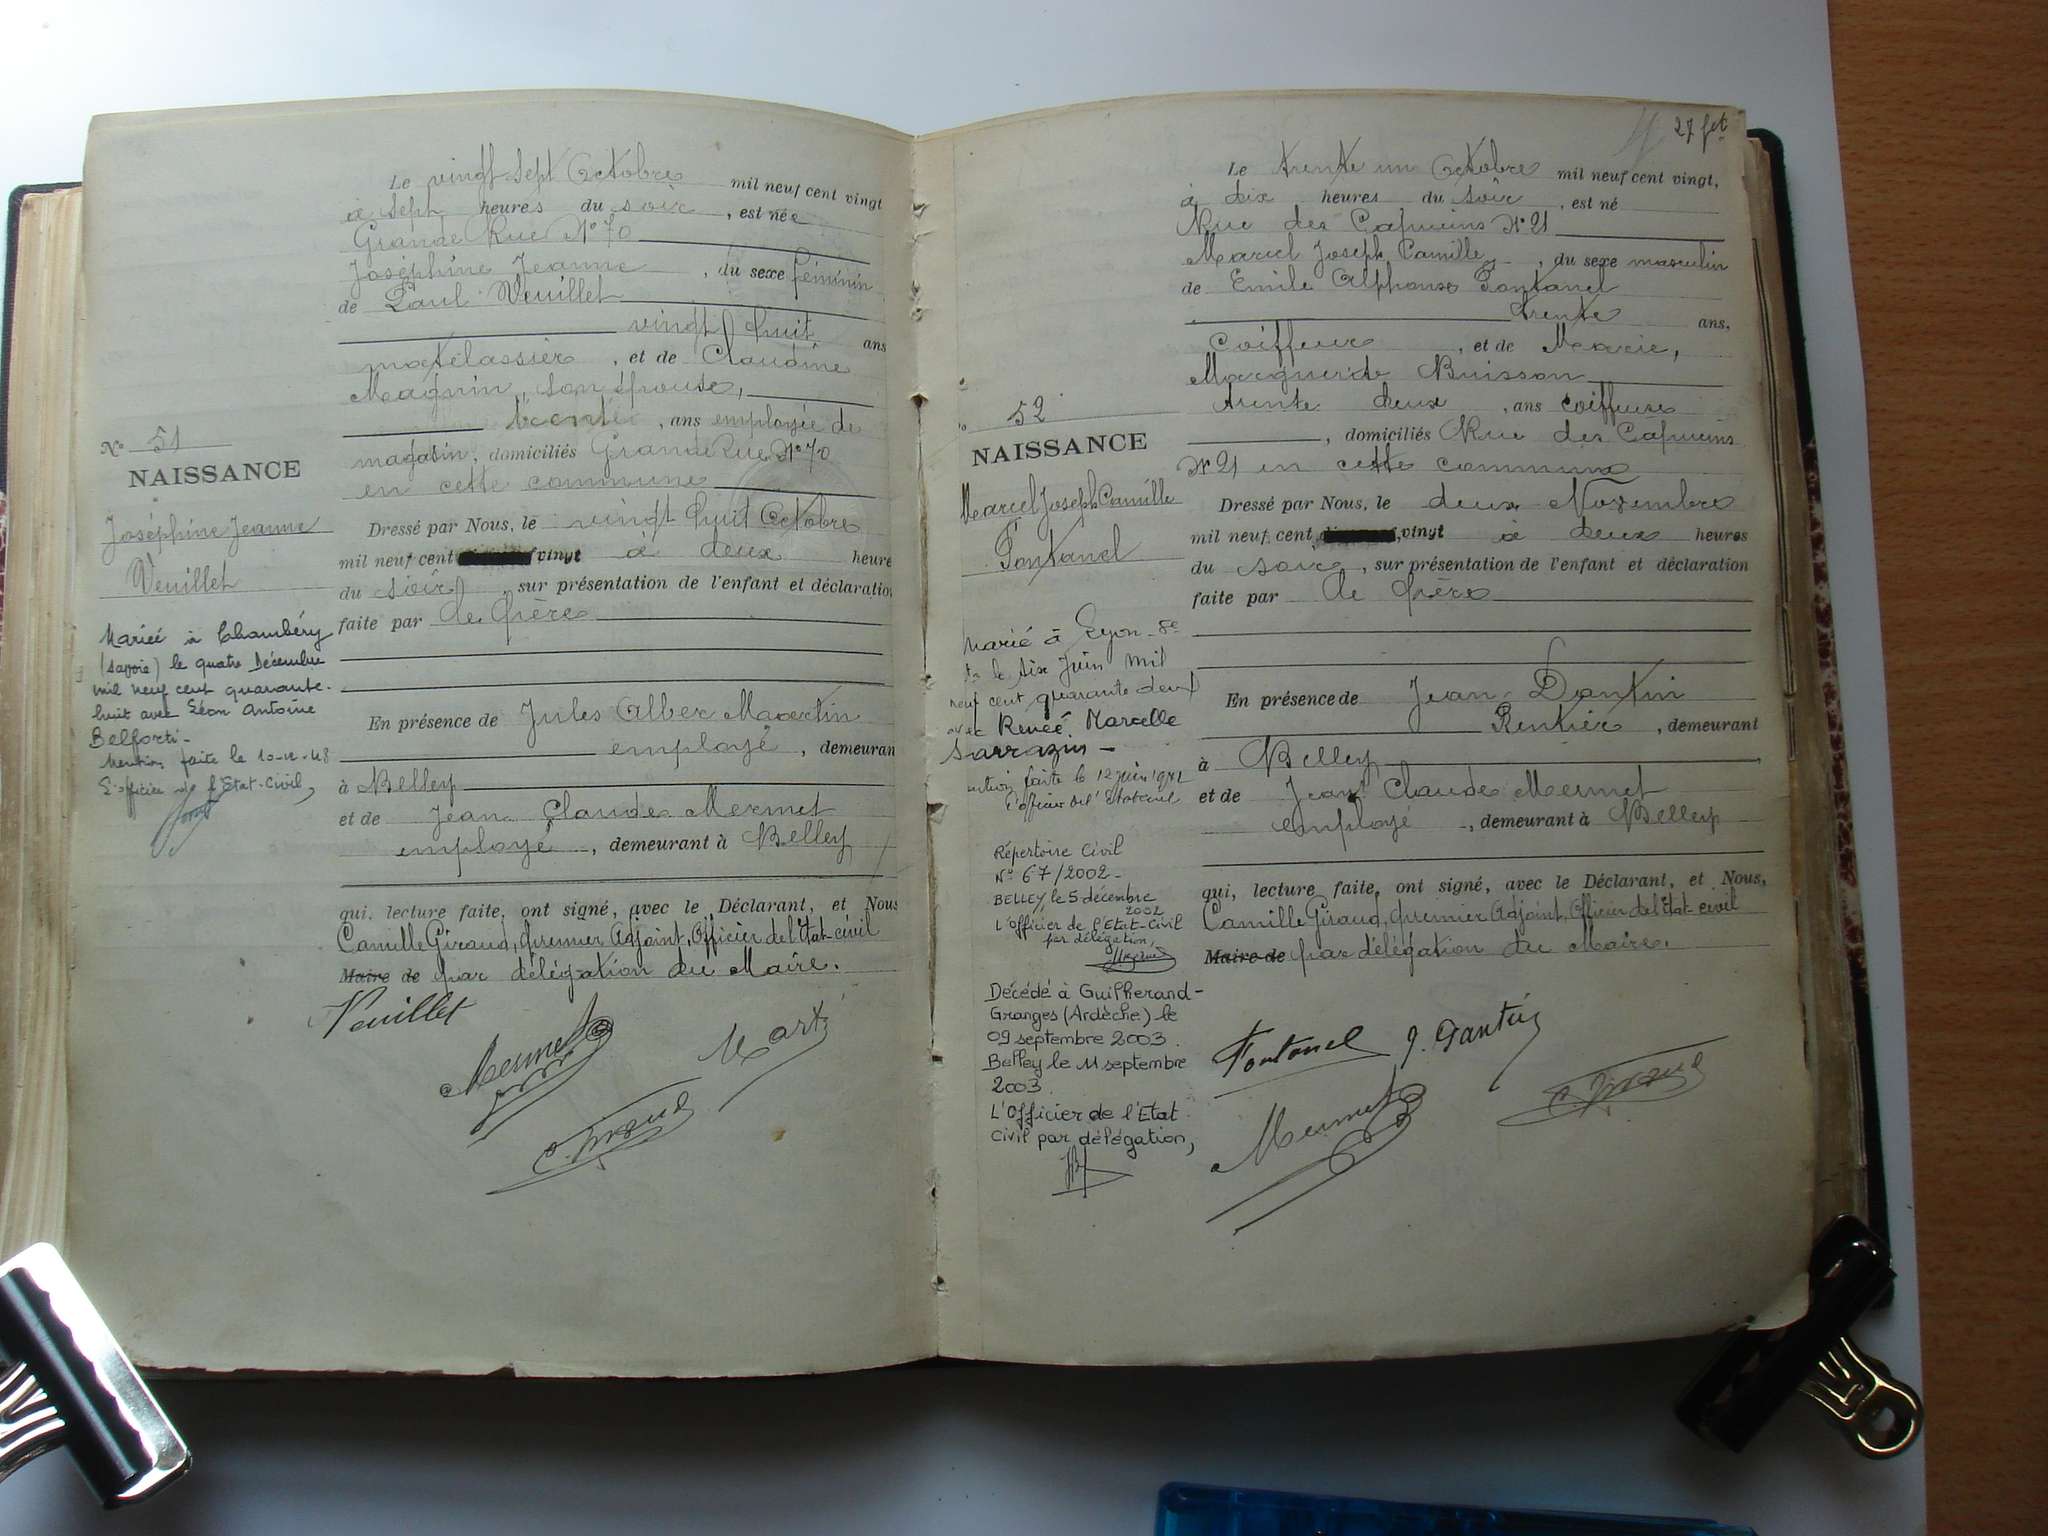 Le vingt-sept Octobre mil neuf cent vingt
à sept heures du soir, est née
Grande Rue N° 70
Joséphine Jeanne, du sexe féminin
de Paul Veuillet
vingt huit ans
matelassier, et de Claudine
Magnin, son épouse,
trente, ans employée de
magasin, domiciliés Grande Rue N° 70
en cette commune
N° 51
NAISSANCE
Joséphine Jeanne
Veuillet
Dressé par Nous, le vingt huit Octobre
mil neuf cent vingt à deux heure
du soir, sur présentation de l'enfant et déclaration
faite par le Père
Mariée à Chambéry
(Savoie) le quatre Décembre
mil neuf cent quarante-
huit avec Léon Antoine
Belforti-
Mention faite le 10-12-48
L'officier de l'Etat-Civil,
En présence de Jules Alber Martin
employé, demeuran
à Belley
et de Jean Claude Mermet
employé, demeurant à Belley
qui, lecture faite, ont signé, avec le Déclarant, et Nous
Camille Giraud, premier Adjoint, Officier de l'Etat-civil
Maire de par délégation du Maire.
Veuillet
Mermet
Martin
C. Giraud
27 fet
Le trente un Octobre mil neuf cent vingt,
à dix heures du soir, est né
Rue des Capucins N° 21
Marcel Joseph Camille, du sexe masculin
de Emile Alphonse Fontanel
trente ans,
Coiffeur, et de Marie,
Marguerite Buisson
trente deux, ans coiffeuse
, domiciliés Rue des Capucins
N° 21 en cette commune
52
NAISSANCE
Marcel Joseph Camille
Fontanel
Dressé par Nous, le deux Novembre
mil neuf cent, vingt à deux heures
du soir, sur présentation de l'enfant et déclaration
faite par le Père
Marié à Lyon-8e
le six Juin mil
neuf cent quarante deux
avec Renée Marcelle
Sarrazin-
mention faite le 12 juin 1942
l'officier de l'Etat civil
En présence de Jean Dantin
Rentier, demeurant
à Belley
et de Jean Claude Mermet
employé, demeurant à Belley
Répertoire Civil
N° 67/2002-
BELLEY le 5 décembre
2002
L'Officier de l'Etat-Civil
par délégation,
Décédé à Guilherand-
Granges (Ardèche) le
09 septembre 2003.
Belley le 11 septembre
2003
L'Officier de l'Etat
Civil par délégation,
qui, lecture faite, ont signé, avec le Déclarant, et Nous,
Camille Giraud, premier Adjoint, Officier de l'Etat-civil
Maire de par délégation du Maire.
Fontanel J. Dantin
Mermet
C. Giraud